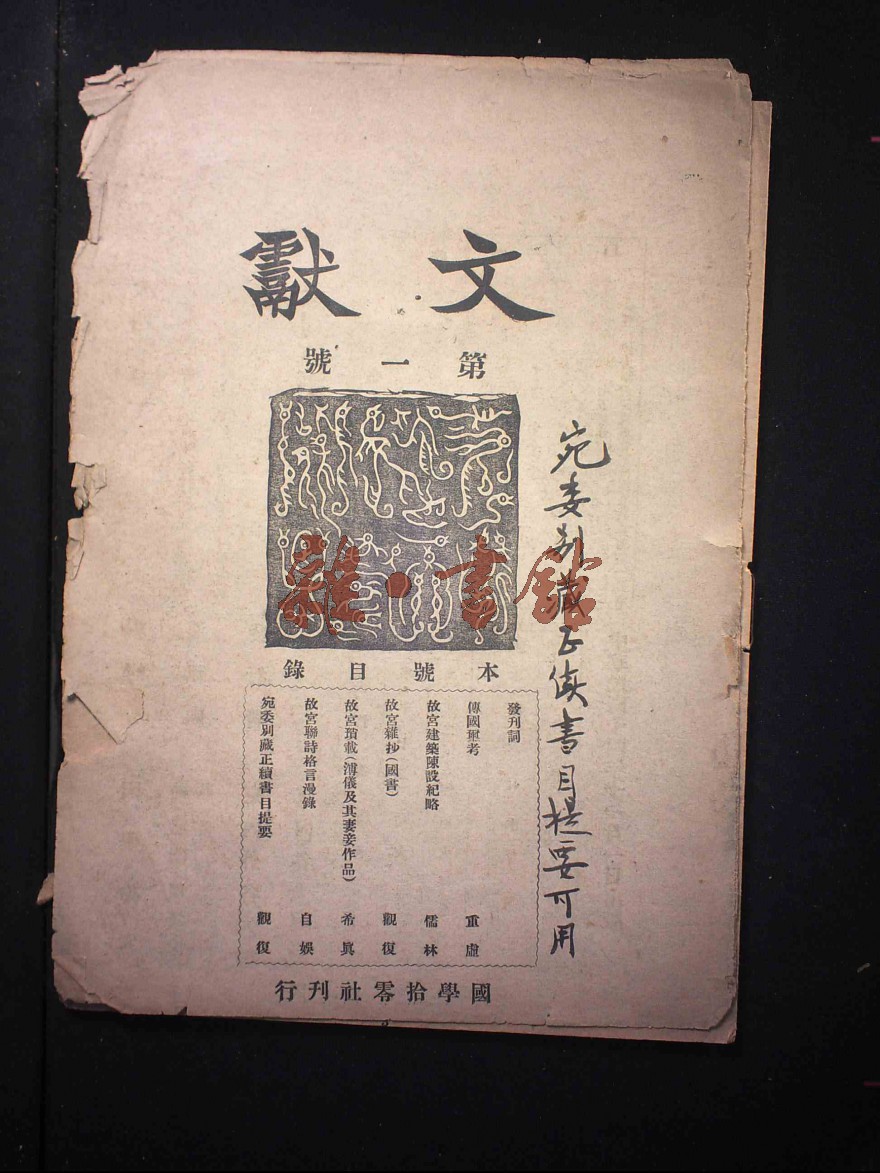 文獻
第一號
雜·書館
本號目錄
發刊詞
傳國璽考 重虛
故宮建築陳設紀略 儒林
故宮雜抄(國書) 觀復
故宮瑣載(溥儀及其妻妾作品) 希眞
故宮聯詩格言漫錄 自娛
宛委別藏正續書目提要 觀復
國學拾零社刊行
宛委别藏正续書目提要可用